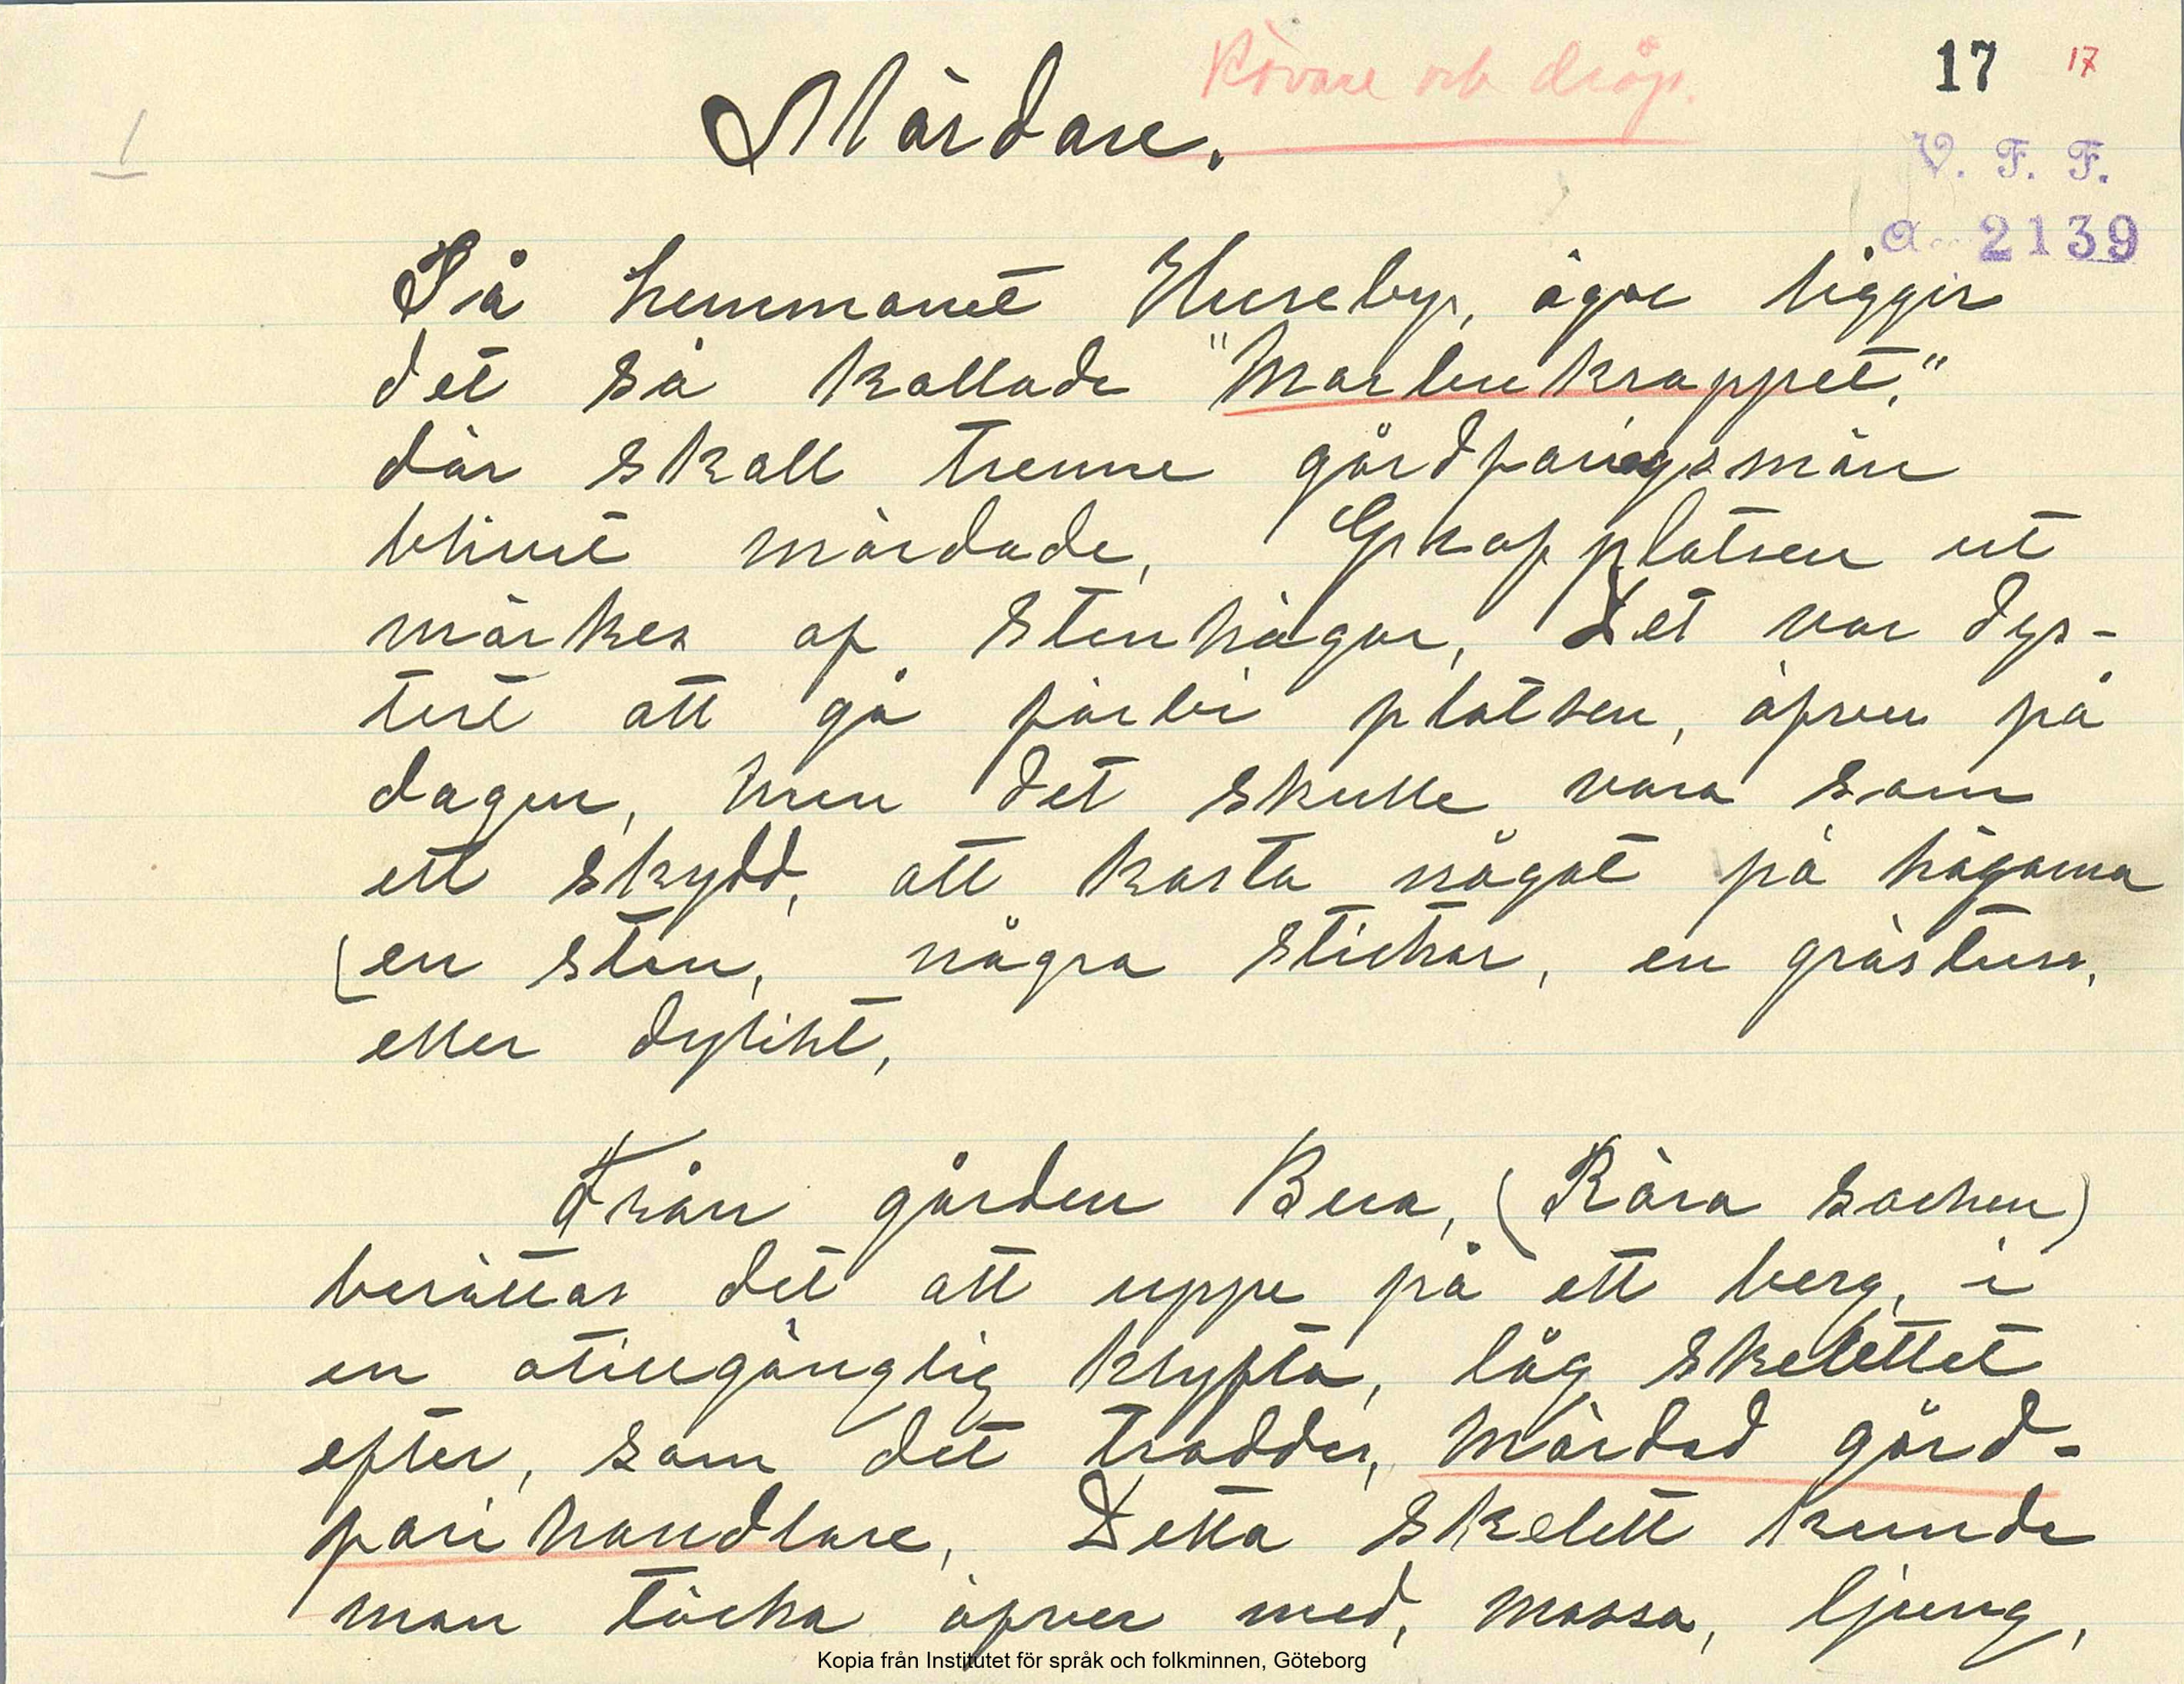 Rövare och dråp.
17 17
Mördare.
1
V. F. F.
a. 2139
På hemmanet Huseby, ägor ligger
det så kallade "Marbukrappet,"
där skall trenne gårdfarigsmän
blivit mördade, Grafplatsen ut
märkes af stenhögar, Det var dys-
tert att gå förbi platsen, äfven på
dagen, men det skulle vara som
ett skydd, att kasta något på högarna
(en sten, några stickor, en grästuva,
eller dylikt,
Från gården Bua, (Röra socken)
berättas det att uppe på ett berg, i
en otillgänglig klyfta, låg skelettet
efter, som det troddes, mördad gård-
farihandlare, Detta skelett kunde
man täcka öfver med, mossa, ljung,
Kopia från Institutet för språk och folkminnen, Göteborg